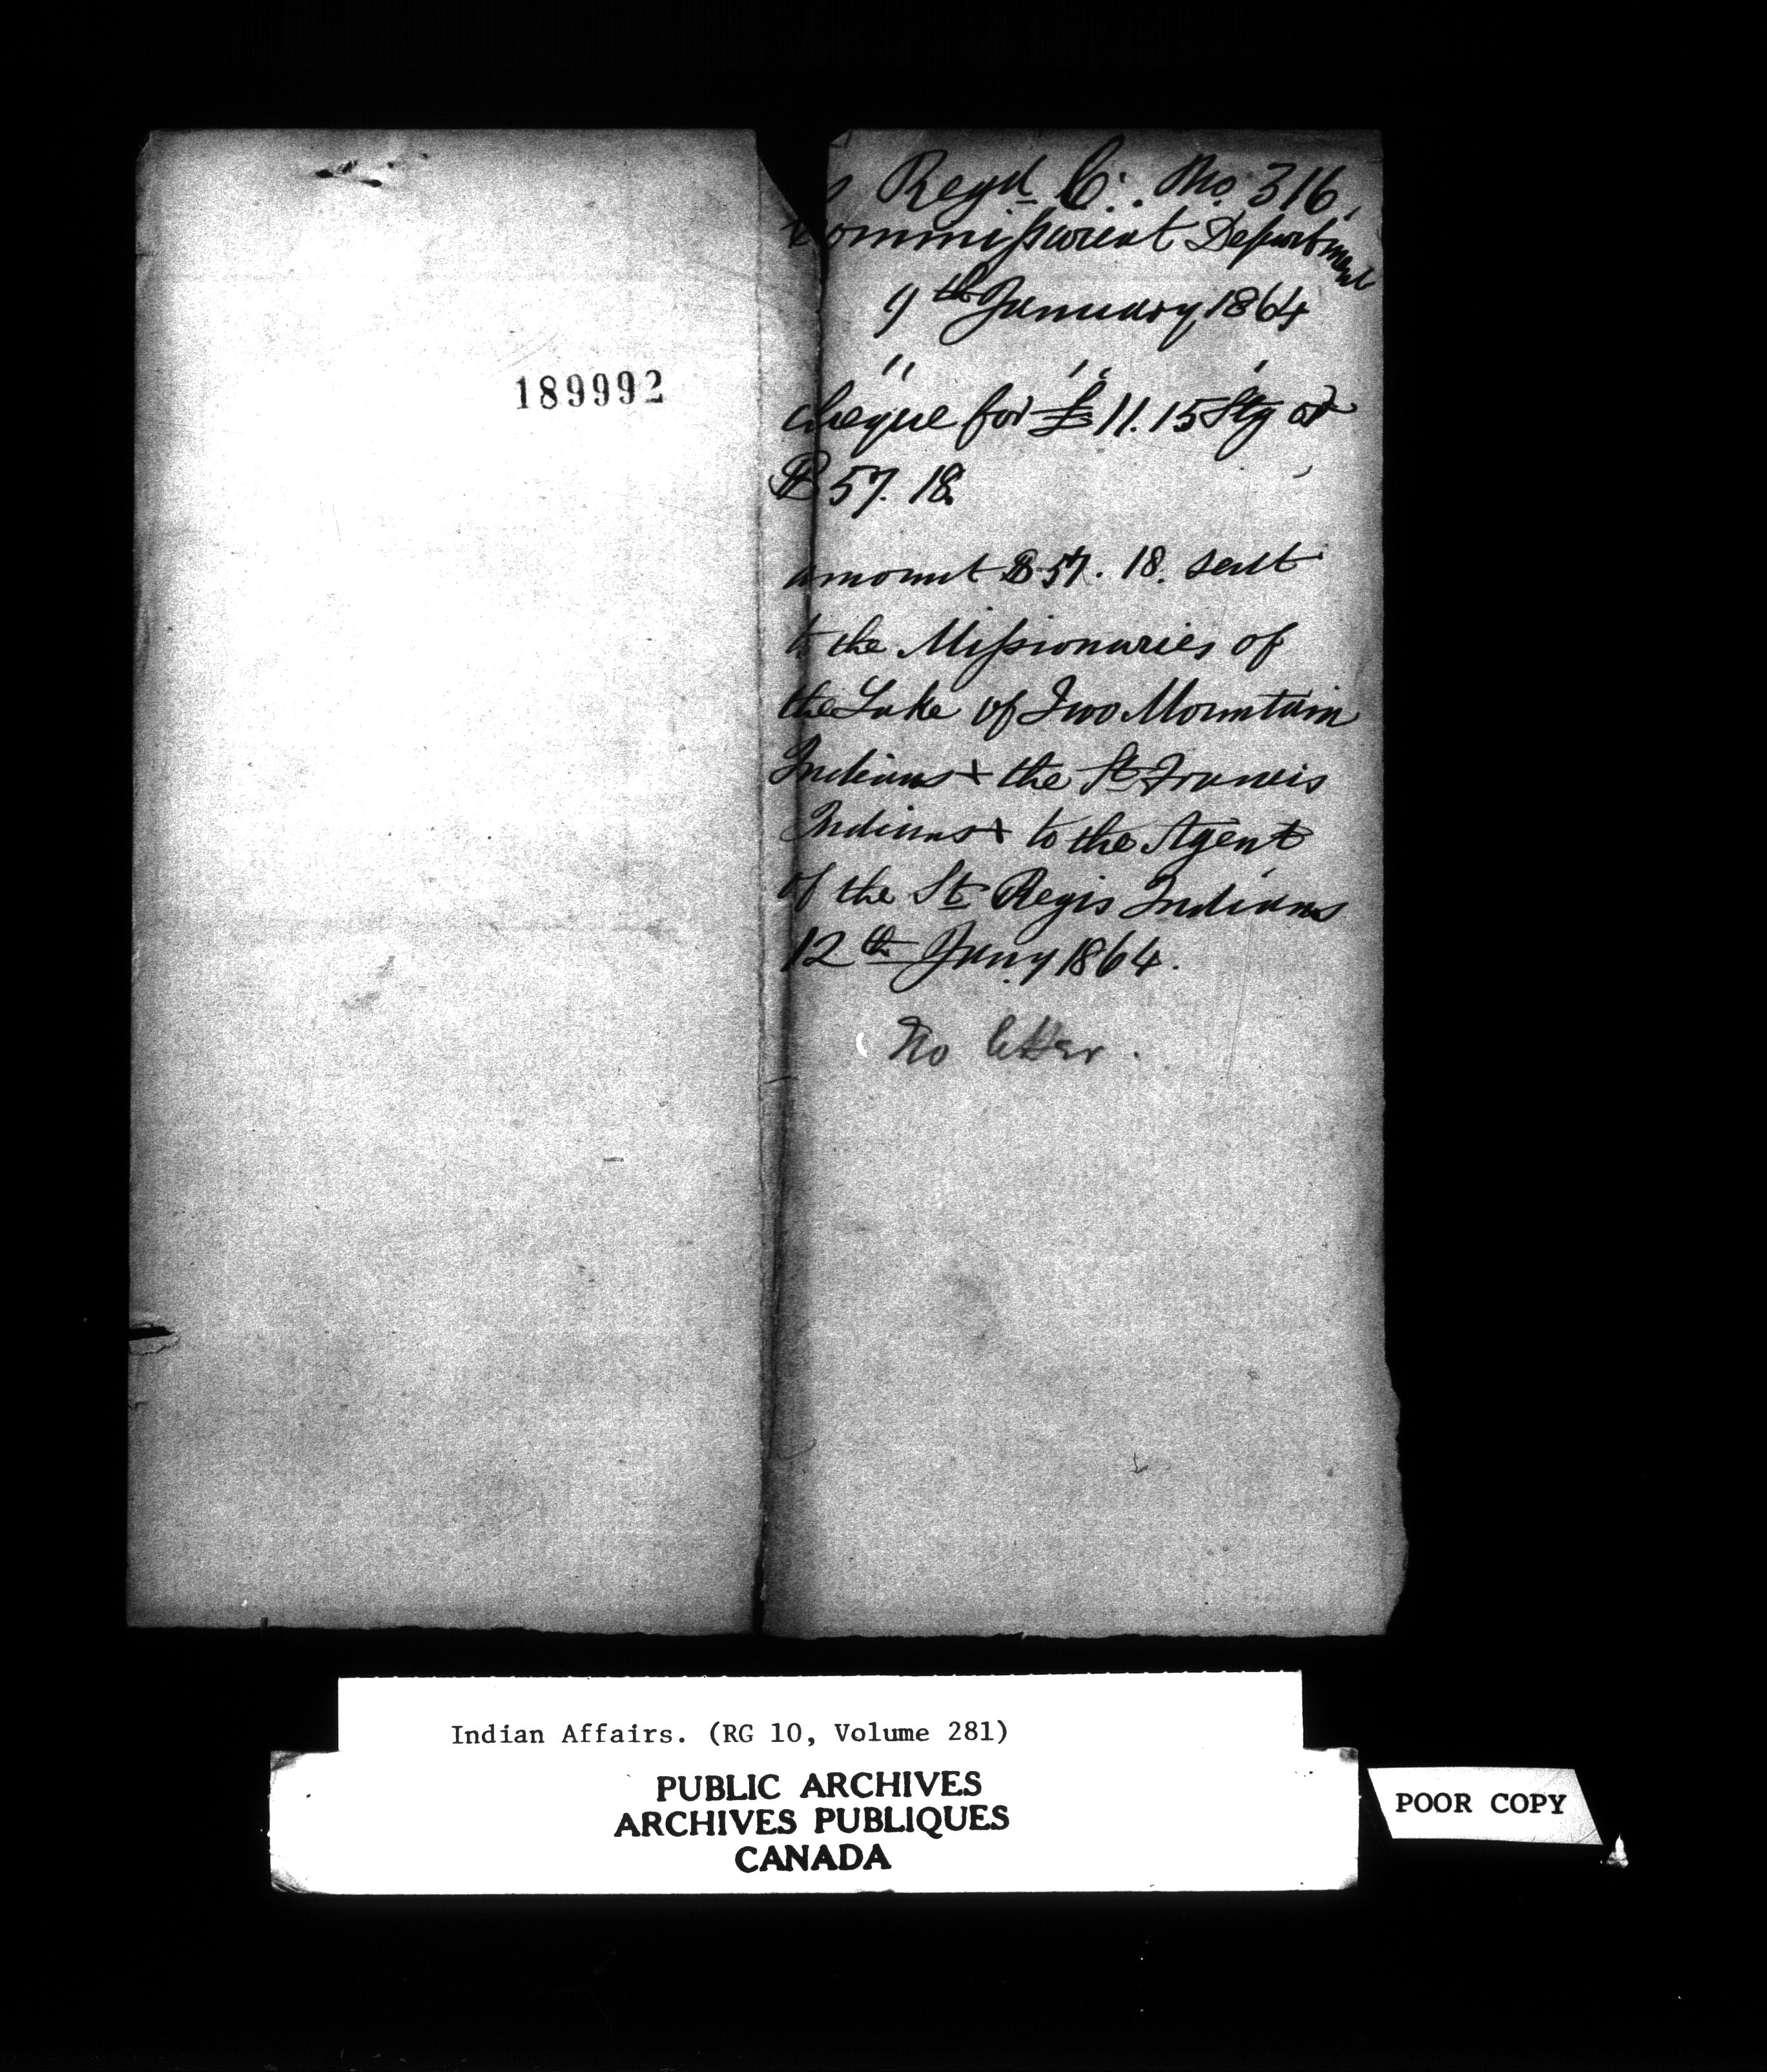 189992
Regd C. No. 316,
Commissariat Department
9th January 1864
" " "
cheque for £11.15 Stg or
$57.18.
amount $57.18. sent
to the Missionaries of
the Lake of Two Mountain
Indians + the St Francis
Indians + to the Agent
of the St Regis Indians
12th Jany 1864.
No letter.
Indian Affairs. (RG 10, Volume 281)
PUBLIC ARCHIVES
ARCHIVES PUBLIQUES
CANADA
POOR COPY